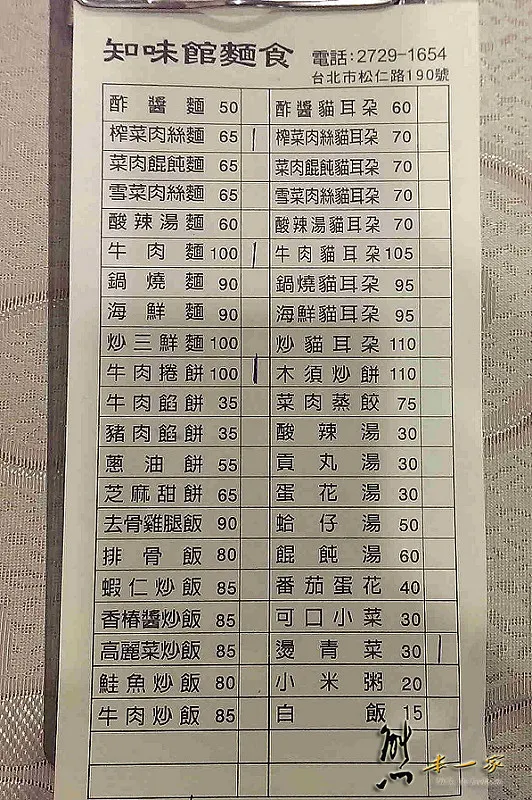 知味館麵食 電話:2729-1654
台北市松仁路190號
酢醬麵 50 酢醬貓耳朶 60
榨菜肉絲麵 65 榨菜肉絲貓耳朶 70
菜肉餛飩麵 65 菜肉餛飩貓耳朶 70
雪菜肉絲麵 65 雪菜肉絲貓耳朶 70
酸辣湯麵 60 酸辣湯貓耳朶 70
牛肉麵 100 牛肉貓耳朶 105
鍋燒麵 90 鍋燒貓耳朶 95
海鮮麵 90 海鮮貓耳朶 95
炒三鮮麵 100 炒貓耳朶 110
牛肉捲餅 100 木須炒餅 110
牛肉餡餅 35 菜肉蒸餃 75
豬肉餡餅 35 酸辣湯 30
蔥油餅 55 貢丸湯 30
芝麻甜餅 65 蛋花湯 30
去骨雞腿飯 90 蛤仔湯 50
排骨飯 80 餛飩湯 60
蝦仁炒飯 85 番茄蛋花 40
香椿醬炒飯 85 可口小菜 30
高麗菜炒飯 85 燙青菜 30
鮭魚炒飯 80 小米粥 20
牛肉炒飯 85 白飯 15
熊 米一家